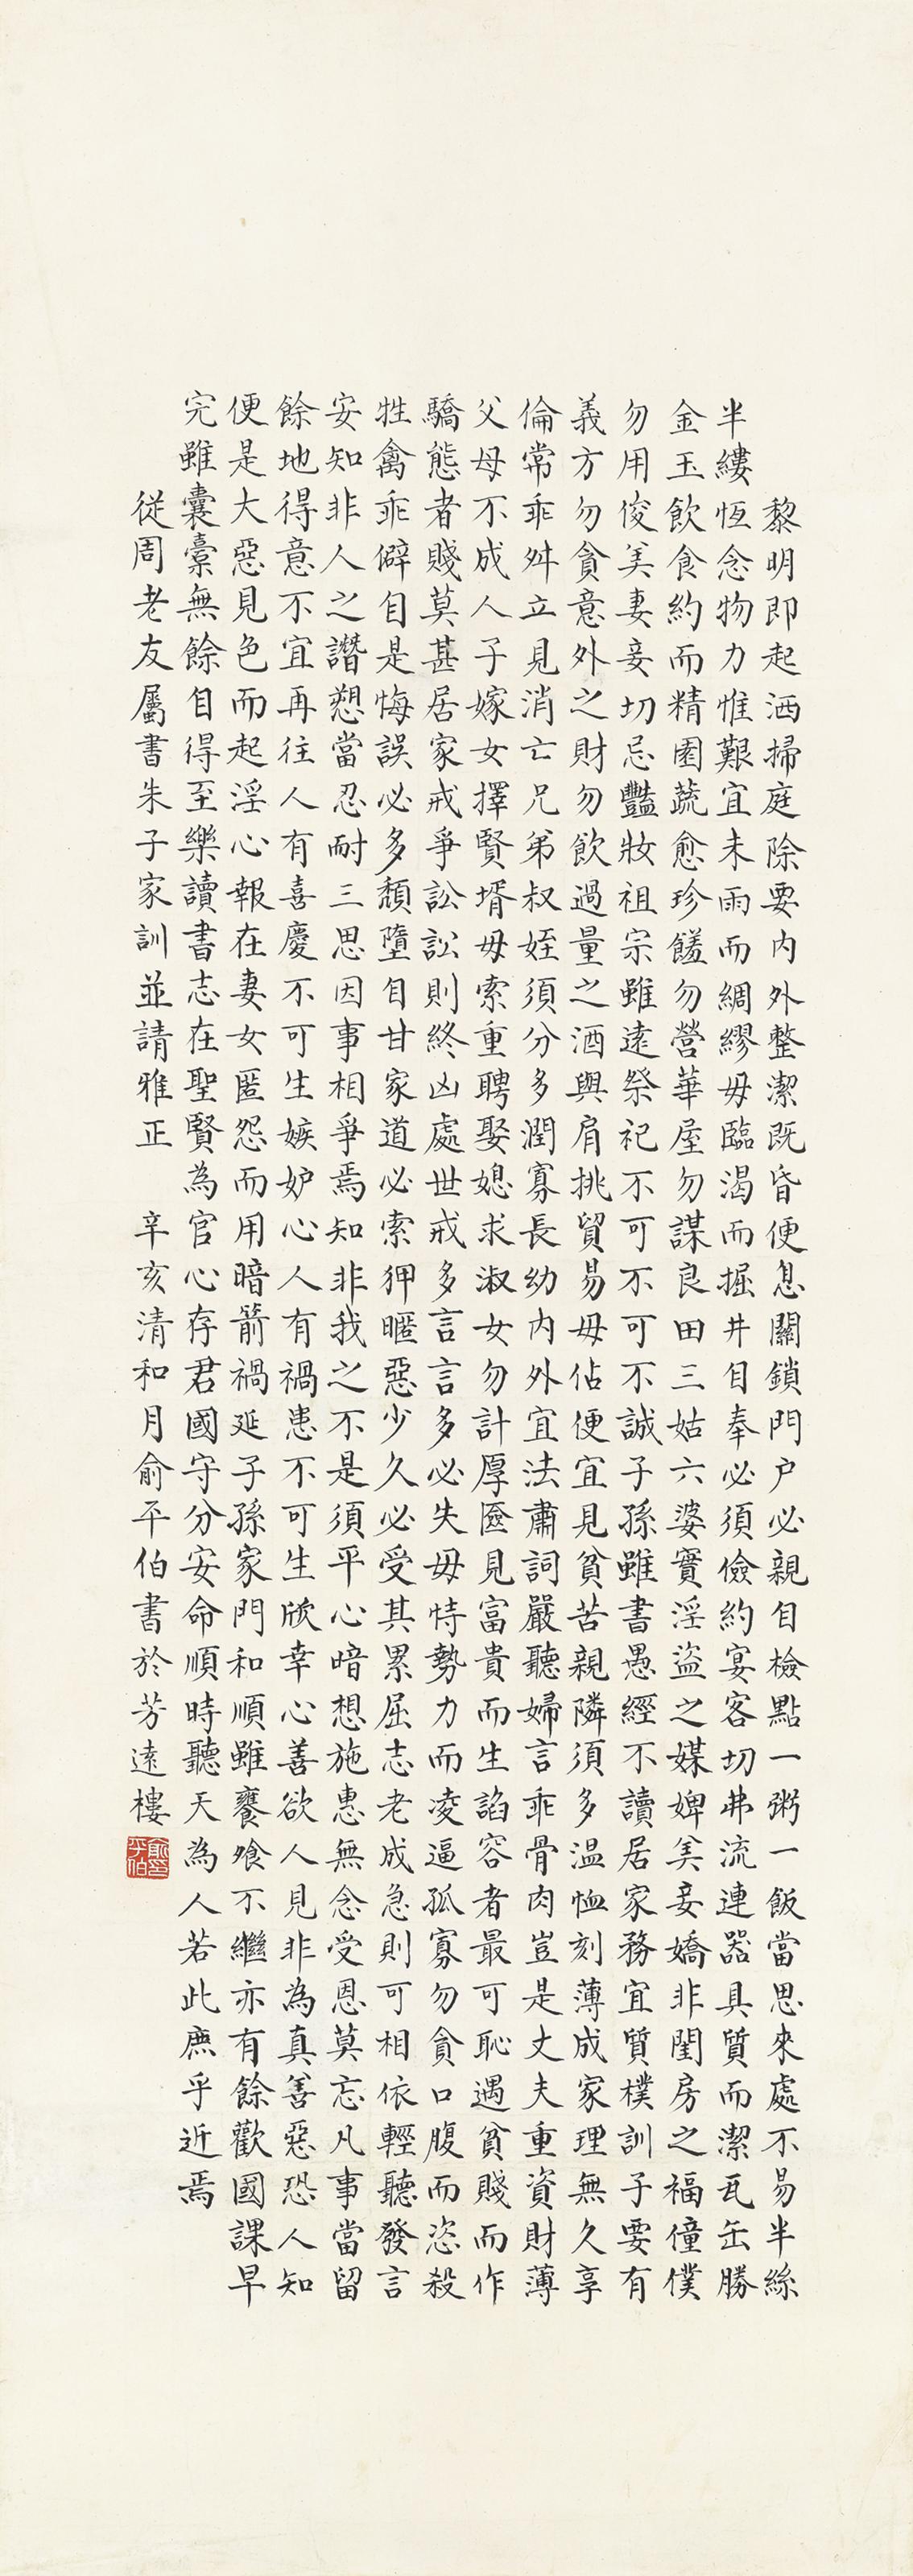 黎明即起洒掃庭除要内外整潔既昏便息關鎖門户必親自檢點一粥一飯當思來處不易半絲
半縷恆念物力惟艱宜未雨而綢繆毋臨渴而掘井自奉必須儉約宴客切弗流連器具質而潔瓦缶勝
金玉飲食約而精園蔬愈珍饈勿營華屋勿謀良田三姑六婆實淫盜之媒婢美妾嬌非閨房之福僮僕
勿用俊美妻妾切忌豔妝祖宗雖遠祭祀不可不可不誠子孫雖書愚經不讀居家務宜質樸訓子要有
義方勿貪意外之財勿飲過量之酒與肩挑貿易毋佔便宜見貧苦親隣須多温恤刻薄成家理無久享
倫常乖舛立見消亡兄弟叔姪須分多潤寡長幼内外宜法肅詞嚴聽婦言乖骨肉豈是丈夫重資財薄
父母不成人子嫁女擇賢壻毋索重聘娶媳求淑女勿計厚匳見富貴而生諂容者最可恥遇貧賤而作
驕態者賤莫甚居家戒爭訟訟則終凶處世戒多言言多必失毋恃勢力而凌逼孤寡勿貪口腹而恣殺
牲禽乖僻自是悔誤必多頹墮自甘家道必索狎暱惡少久必受其累屈志老成急則可相依輕聽發言
安知非人之譖愬當忍耐三思因事相爭焉知非我之不是須平心暗想施惠無念受恩莫忘凡事當留
餘地得意不宜再往人有喜慶不可生嫉妒心人有禍患不可生欣幸心善欲人見非為真善惡恐人知
便是大惡見色而起淫心報在妻女匿怨而用暗箭禍延子孫家門和順雖饔飧不繼亦有餘歡國課早
完雖囊橐無餘自得至樂讀書志在聖賢為官心存君國守分安命順時聽天為人若此庶乎近焉
從周老友屬書朱子家訓並請雅正 辛亥清和月俞平伯書於芳遠樓
俞印平伯